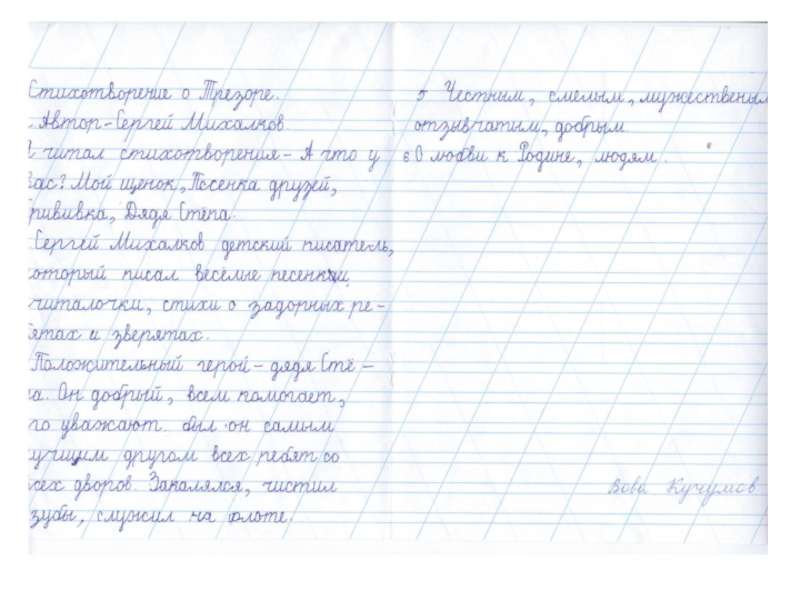 Стихотворение о Трезоре.
. Автор-Сергей Михалков
Я читал стихотворения - А что у
вас? Мой щенок, Песенка друзей,
рививка, Дядя Стёпа.
Сергей Михалков детский писатель,
который писал весёлые песенки,
читалочки, стихи о задорных ре-
ятах и зверятах.
Положительный герой - дядя Стё -
па. Он добрый, всем помогает,
го уважают. был он самым
учшим другом всех ребят со
всех дворов. Закалялся, чистил
зубы, служил на флоте.
5 Честным, смелым, мужественым
отзывчатым, добрым.
6 О любви к Родине, людям.
Вова Кучумов